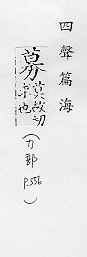 四聲篇海
募莫故切
也
(力部 P.556)